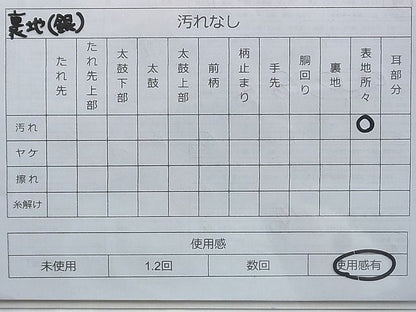 裏地(銀) 汚れなし
たれ先 たれ先上部 太鼓下部 太鼓 太鼓上部 前柄 柄止まり 手先 胴回り 裏地 表地所々 耳部分
汚れ ○
ヤケ
擦れ
糸解け
使用感
未使用 1.2回 数回 使用感有